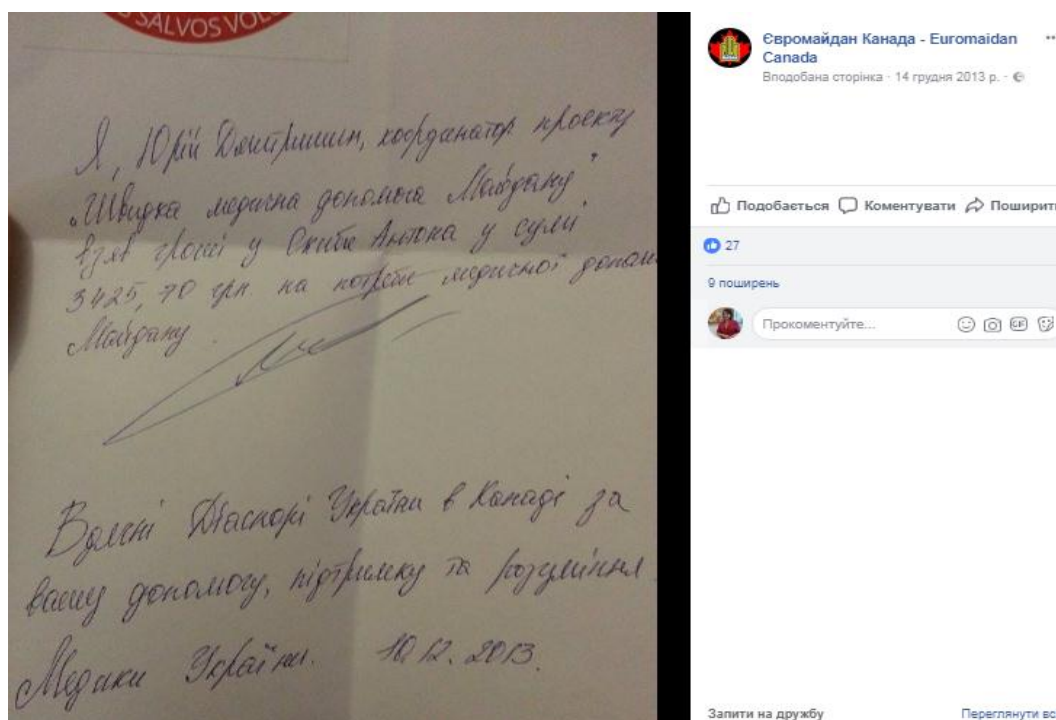 SALVOS VOL
Я, Юрій Дмитришин, координатор проекту
„Швидка медична допомога Майдану"
взяв гроші у Скиби Антона у сумі
3425,70 грн. на потреби медичної допом
Майдану.
Вдячні Діаспорі України в Канаді за
вашу допомогу, підтримку та розуміння
Медики України. 10.12.2013.
Євромайдан Канада - Euromaidan
Canada
Вподобана сторінка · 14 грудня 2013 р. ·
Подобається Коментувати Поширити
27
9 поширень
Прокоментуйте...
GIF
Запити на дружбу Переглянути вс